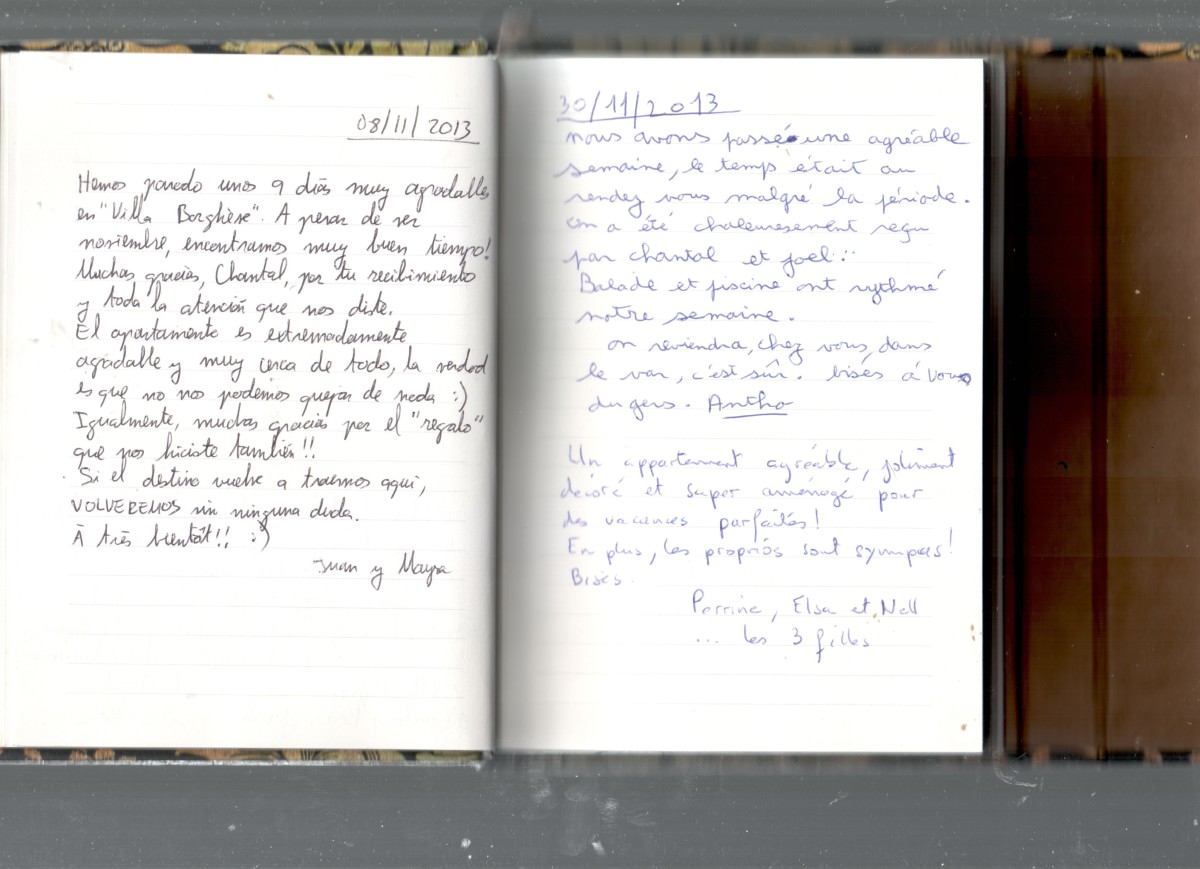 08/11/2013
Hemos pasado unos 9 diás muy agradables
en "Villa Borghèse". A pesar de ser
noviembre, encontramos muy buen tiempo!
Muchas gracias, Chantal, por tu recibimiento
y toda la atención que nos diste.
El apartamento es extremadamente
agradable y muy cerca de todo, la verdad
es que no nos podemos quejar de nada :)
Igualmente, muchas gracias por el "regalo"
que nos hiciste también!!
Si el destino vuelve a traernos aqui,
VOLVEREMOS sin ninguna duda.
À très bientôt!! :)
Juan y Mayra
30/11/2013
nous avons passé une agréable
semaine, le temps était au
rendez vous malgré la période.
on a été chaleuresement reçu
par chantal et joel...
Balade et piscine ont rythmé
notre semaine.
on reviendra, chez vous, dans
le var, c'est sûr. bisés à vous
du gers. Antho
Un appartement agréable, joliment
décoré et super aménagé pour
des vacances parfaites!
En plus, les proprios sont sympas!
Bises.
Perrine, Elsa et Nell
... les 3 filles